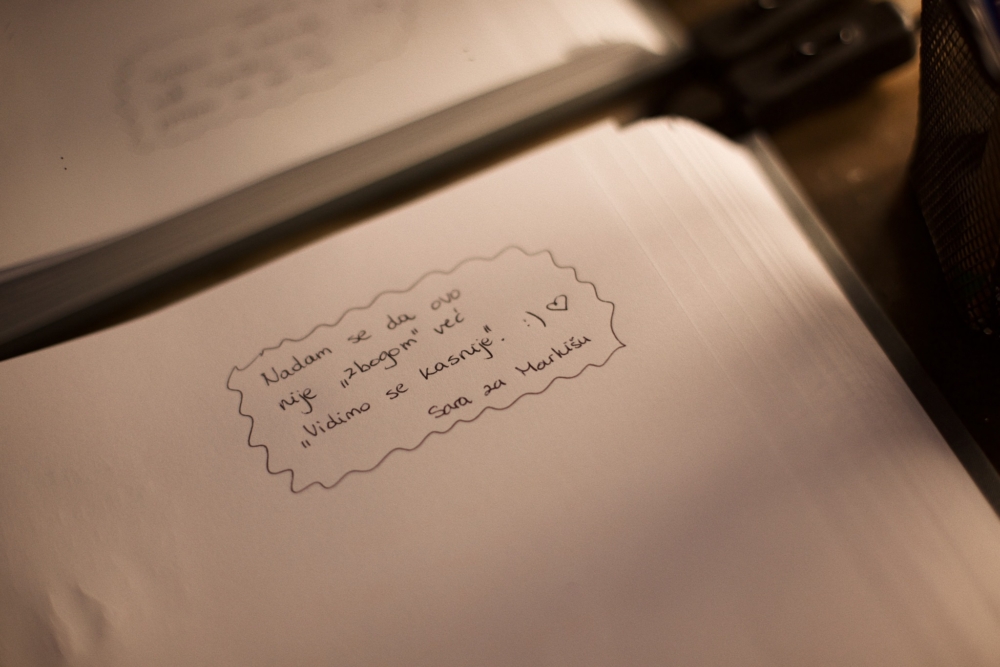 Nadam se da ovo
nije „zbogom" već
„Vidimo se kasnije". :) ♡
Sara za Markišu